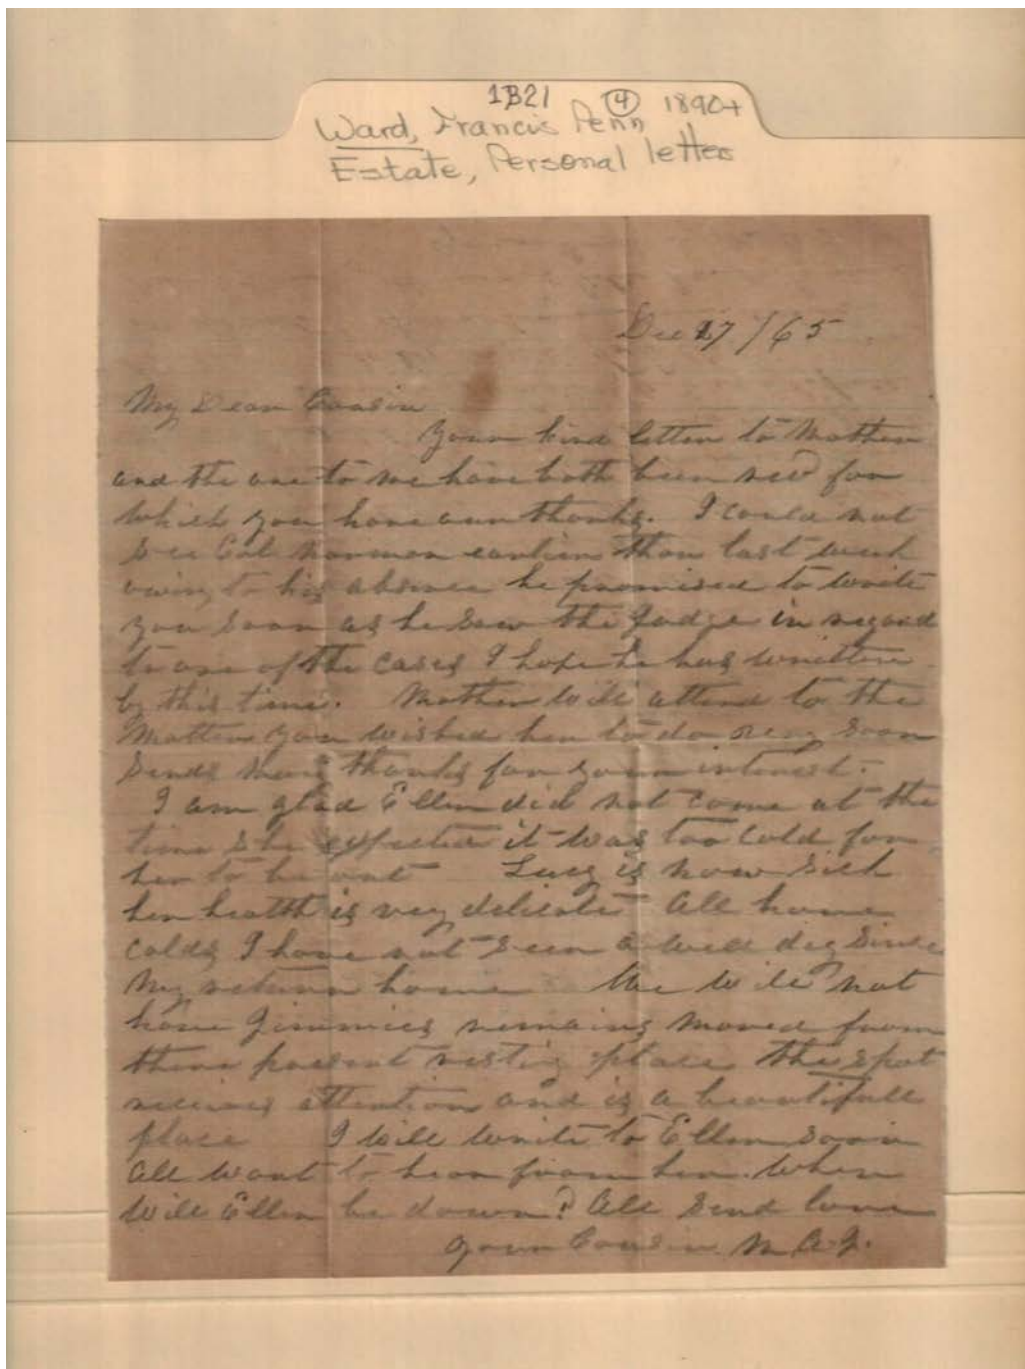 1B21 4 1890+
Ward, Francis Penn
Estate, Personal letters
Dec 27 / 65
My Dear Cousin
Your kind letter to Mother
and the one to me have both been recd for
which you have our thanks. I could not
see Col Harmon earlier than last week
owing to his absence he promised to write
you soon as he saw the Judge in regard
to one of the cases I hope he has written
by this time. Mother will attend to the
Matter you wished her to do very soon
Sends many thanks for your interest.
I am glad Ellen did not come at the
time she expected it was too cold for
her to be out Lucy is now sick
her health is very delicate All have
colds I have not seen a well day since
My return home We will not
have Jimmies remains moved from
there present resting place the spot
receives attention and is a beautifull
place I will write to Ellen soon
All want to hear from her. When
will Ellen be down? All send love
Your Cousin